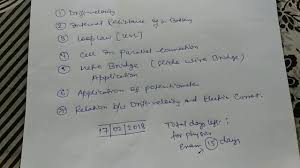 ① Drift velocity
② Internal Resistance of a Battery
③ Loop Law [KVL]
④ Cell in Parallel connection
⑤ Bridge (slide wire Bridge)
Application
⑥ Application of potentiometer
⑦ Relation b/w Drift velocity and Electric Current.
17/02/2018
Total days left:
for physics
Exam (15) days